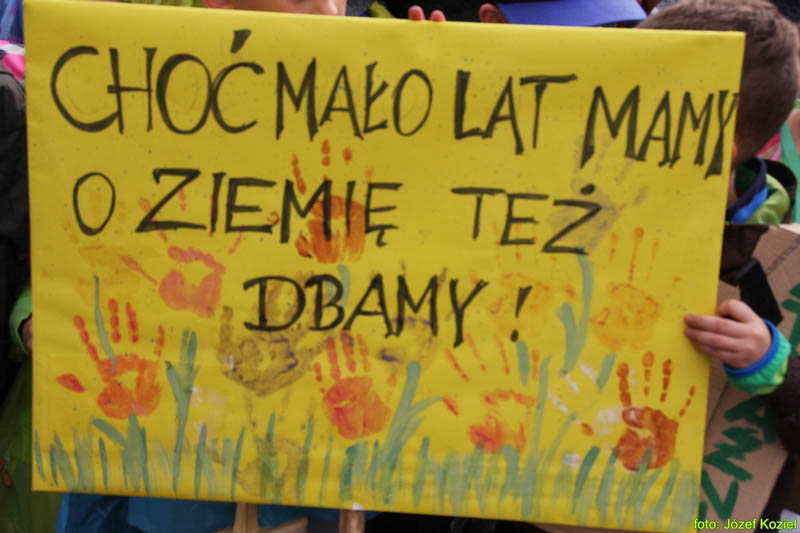 CHOĆ MAŁO LAT MAMY
O ZIEMIĘ TEŻ
DBAMY!
foto: Józef Kozieł